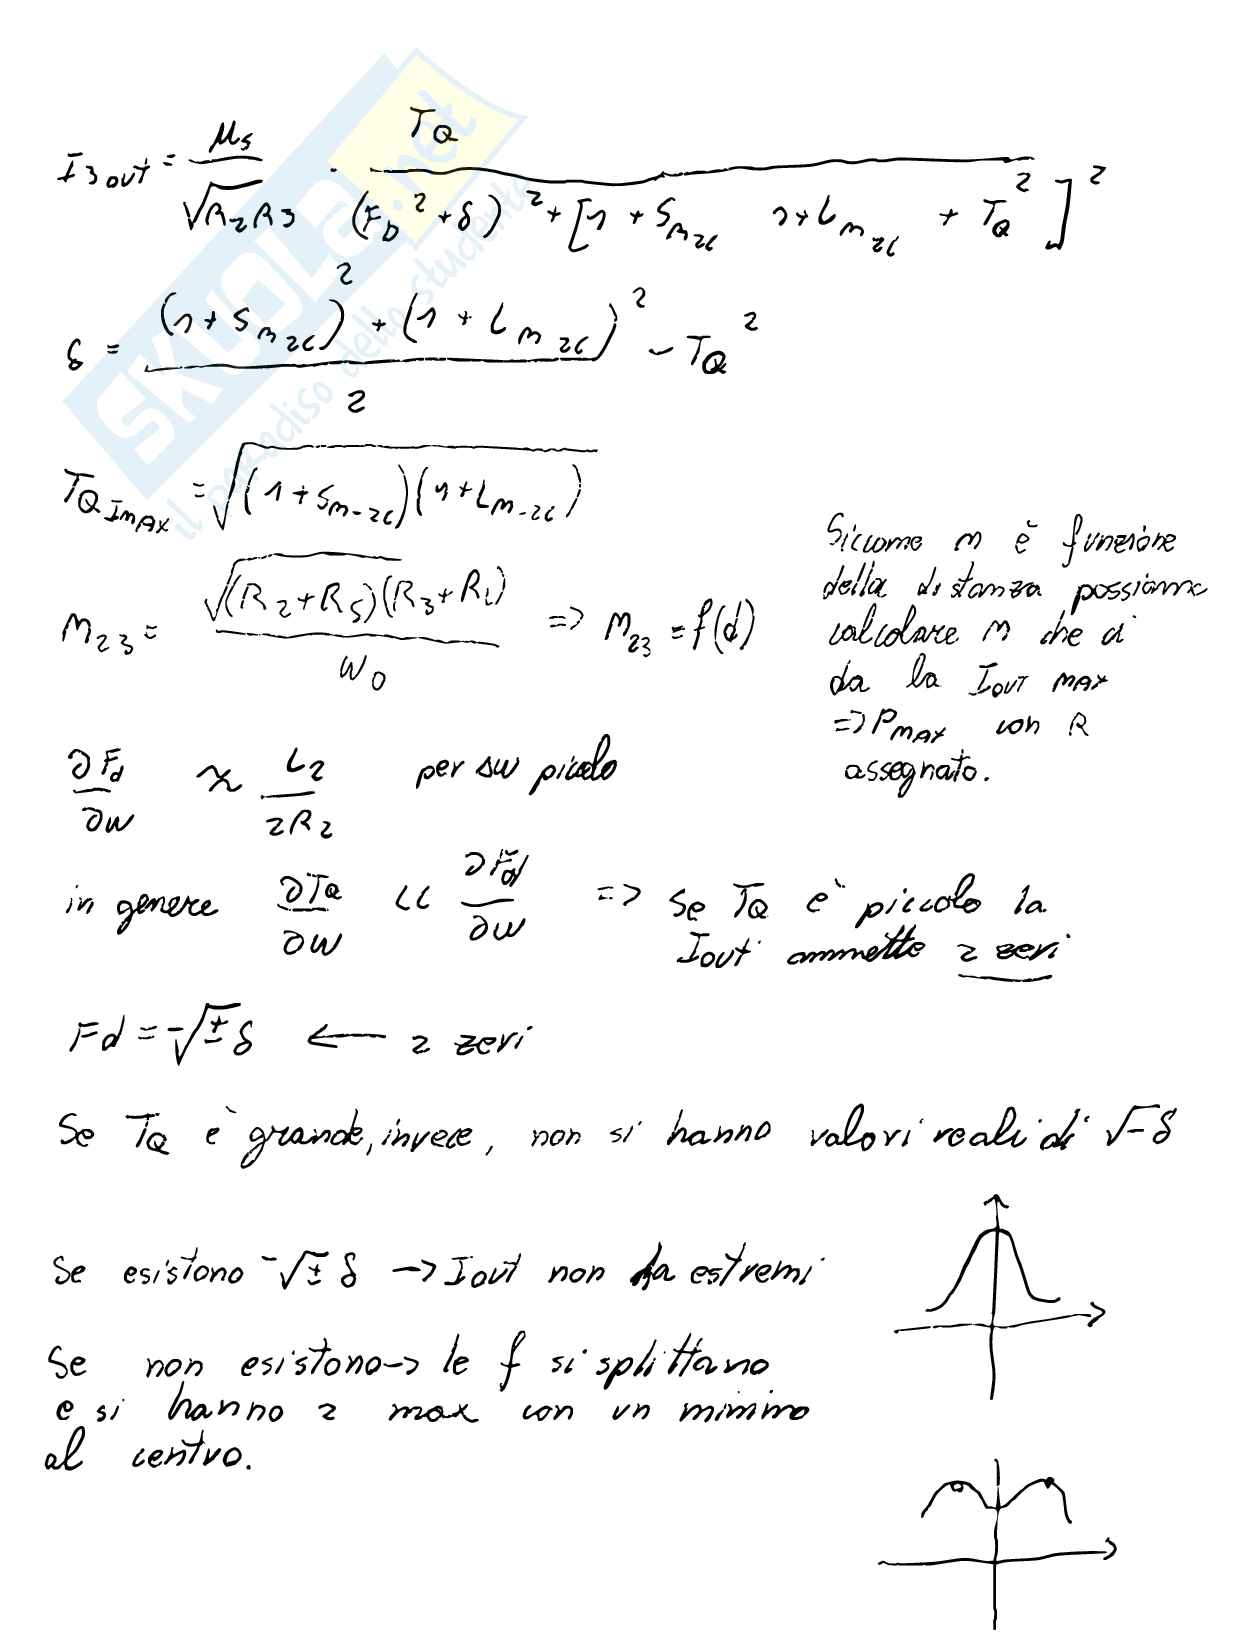 I3out = μs / √R2R3 · TQ / (FD² + δ)² + [1 + Sm26 1 + Lm26 + TQ²]²
δ = (1 + Sm26)² + (1 + Lm26)² / 2 - TQ²
TQImax = √(1 + Sm-26)(1 + Lm-26)
m23 = √(R2 + RS)(R3 + RL) / w0 => m23 = f(d)
Siccome m è funzione
della distanza possiamo
calcolare m che ci
da la IOUT MAX
=> PMAX con R
assegnato.
∂Fd / ∂w ≈ L2 / 2R2 per Δw piccolo
in genere ∂TQ / ∂w << ∂Fd / ∂w => Se TQ è piccolo la
Iout ammette 2 zeri
Fd = -√± δ ← 2 zeri
Se TQ è grande, invece, non si hanno valori reali di √-δ
Se esistono -√± δ → Iout non ha estremi
Se non esistono → le f si splittano
e si hanno 2 max con un minimo
al centro.
SKUOLA.net
il paradiso dello studente